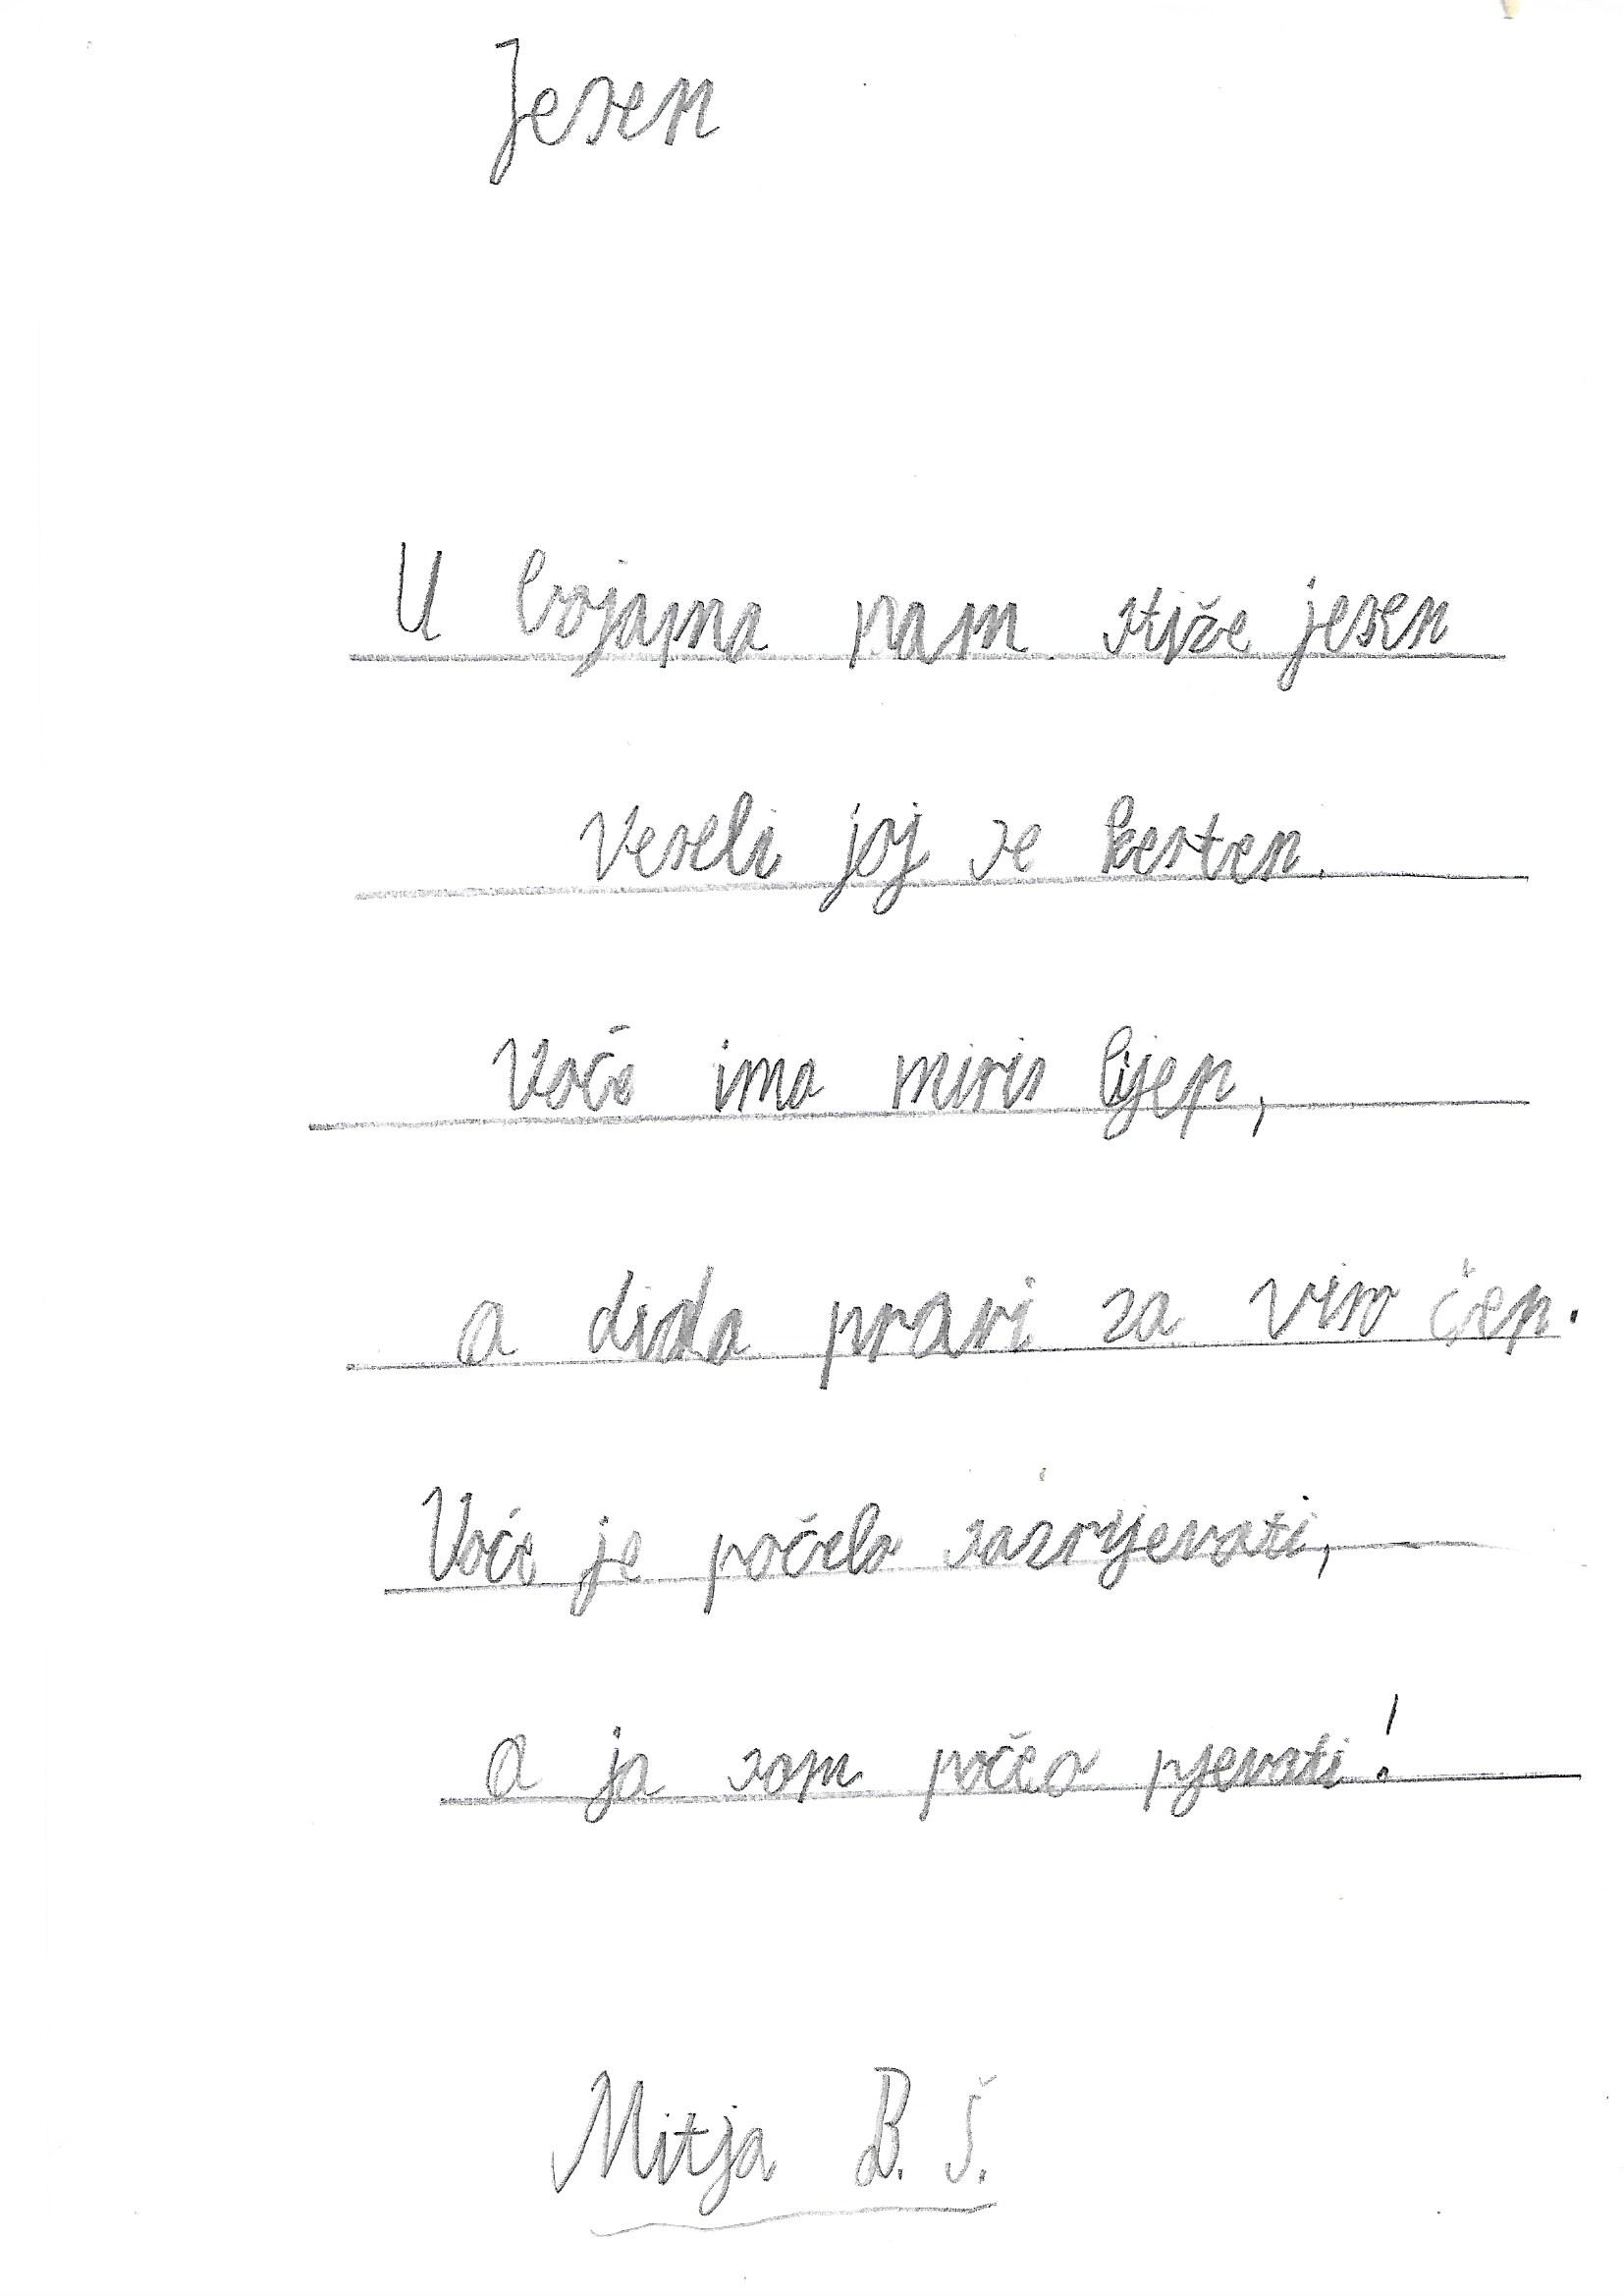 Jesen
U bojama nam stiže jesen
Veseli joj se kesten.
Voće ima miris lijep,
a dida pravi za vino čep.
Voće je počelo sazrijevati,
a ja sam počeo pjevati!
Mitja B. Š.